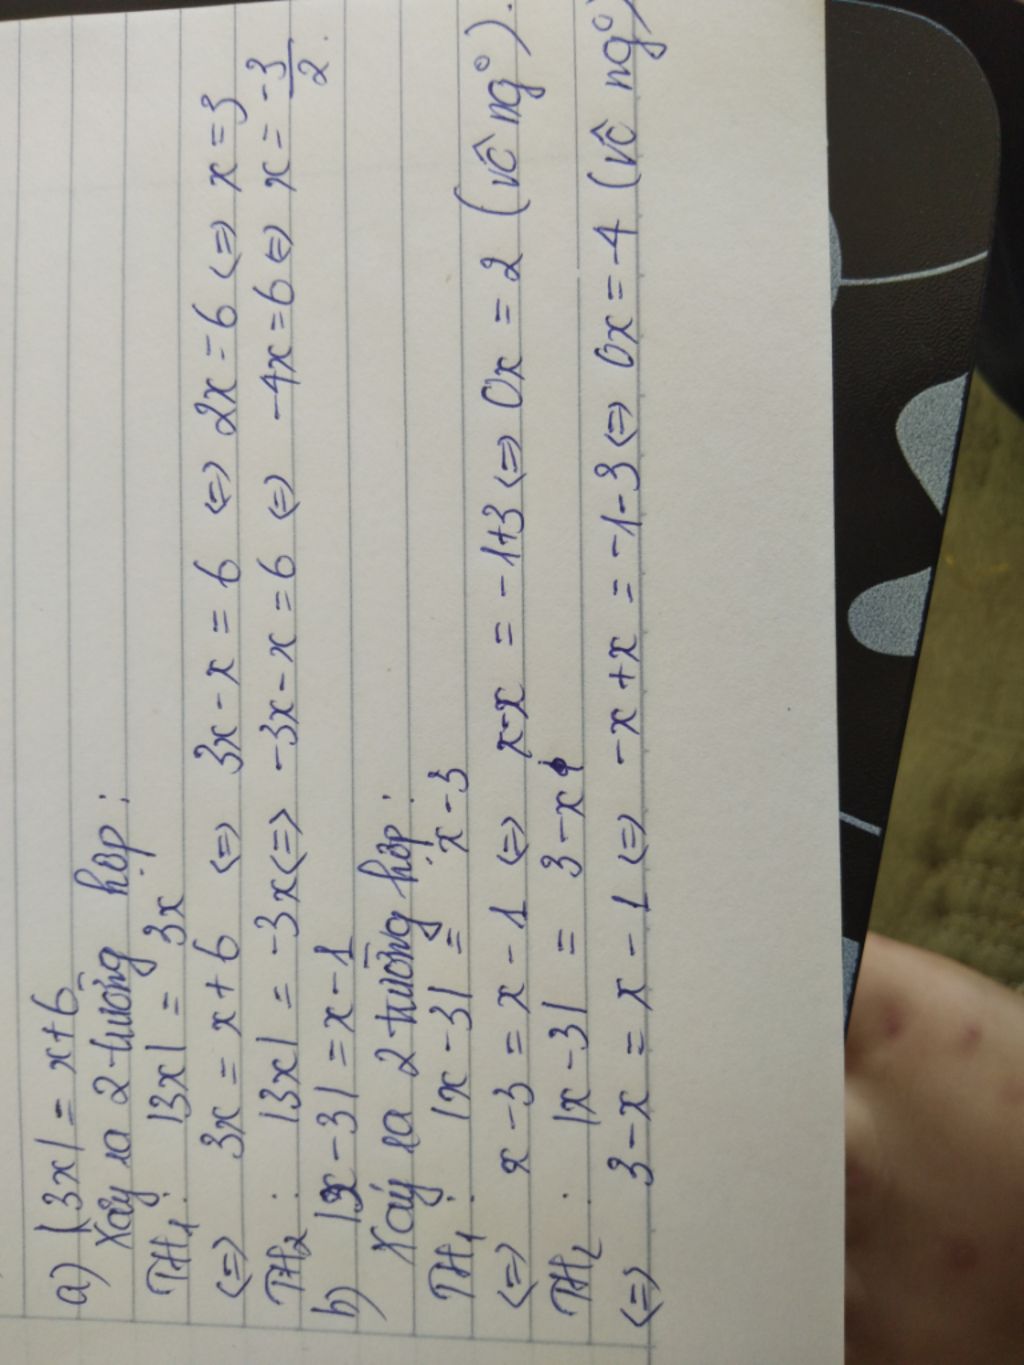 a) |3x| = x+6
Xảy ra 2 trường hợp:
TH1: |3x| = 3x
<=> 3x = x+6 <=> 3x - x = 6 <=> 2x = 6 <=> x = 3
TH2: |3x| = -3x <=> -3x - x = 6 <=> -4x = 6 <=> x = -3/2.
b) |x-3| = x-1
Xảy ra 2 trường hợp:
TH1: |x-3| = x-3
<=> x-3 = x-1 <=> x-x = -1+3 <=> 0x = 2 (vô ngº).
TH2: |x-3| = 3-x
<=> 3-x = x-1 <=> -x+x = -1-3 <=> 0x = -4 (vô ngº)